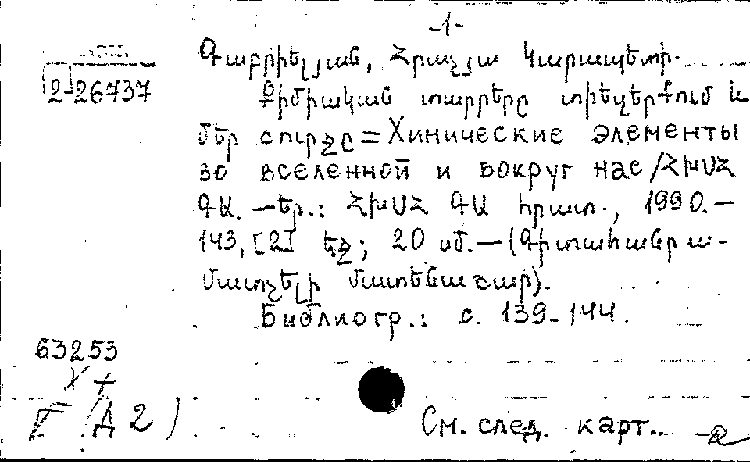 -1-
Գաբրիելյան, Հրաչյա Կարապետի.
2-26737
Քիմիական տարրերը տիեզերքում և
մեր շուրջը = Химические элементы
во вселенной и вокруг нас / ՀԽՍՀ
ԳԱ. — Եր.: ՀԽՍՀ ԳԱ հրատ., 1990. —
143, [2] էջ; 20 սմ. — (Գիտահանրա-
մատչելի մատենաշար).
Библиогр.: с. 139-144.
63253
(Д2)
См. след. карт.